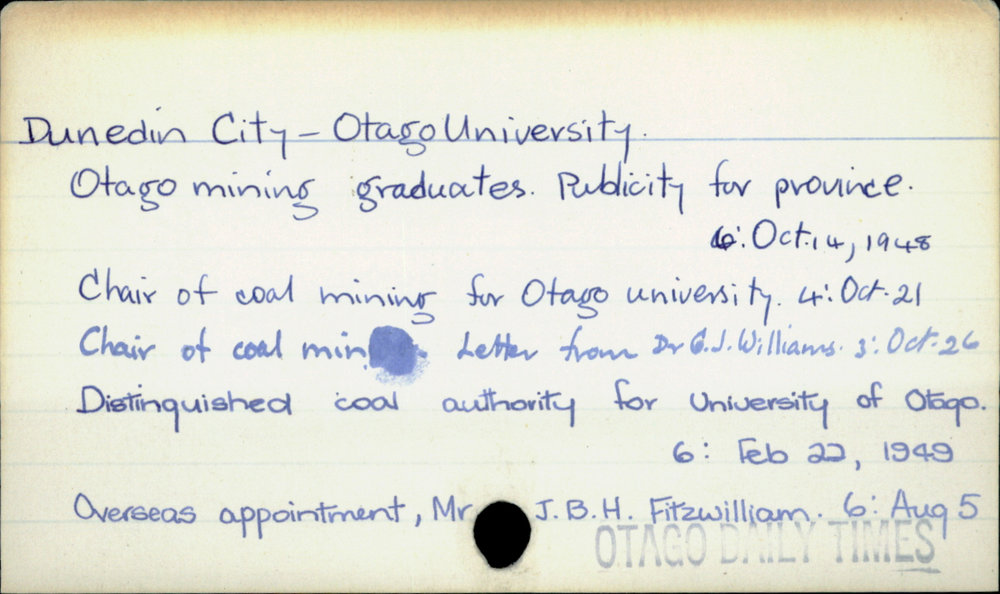 Dunedin City - Otago University.
Otago mining graduates. Publicity for province.
6: Oct. 14, 1948
Chair of coal mining for Otago university. 4: Oct. 21
Chair of coal min . Letter from Dr G.J. Williams. 3: Oct. 26
Distinguished coal authority for University of Otago.
6: Feb 22, 1949
Overseas appointment, Mr J.B.H. Fitzwilliam. 6: Aug 5
OTAGO DAILY TIMES